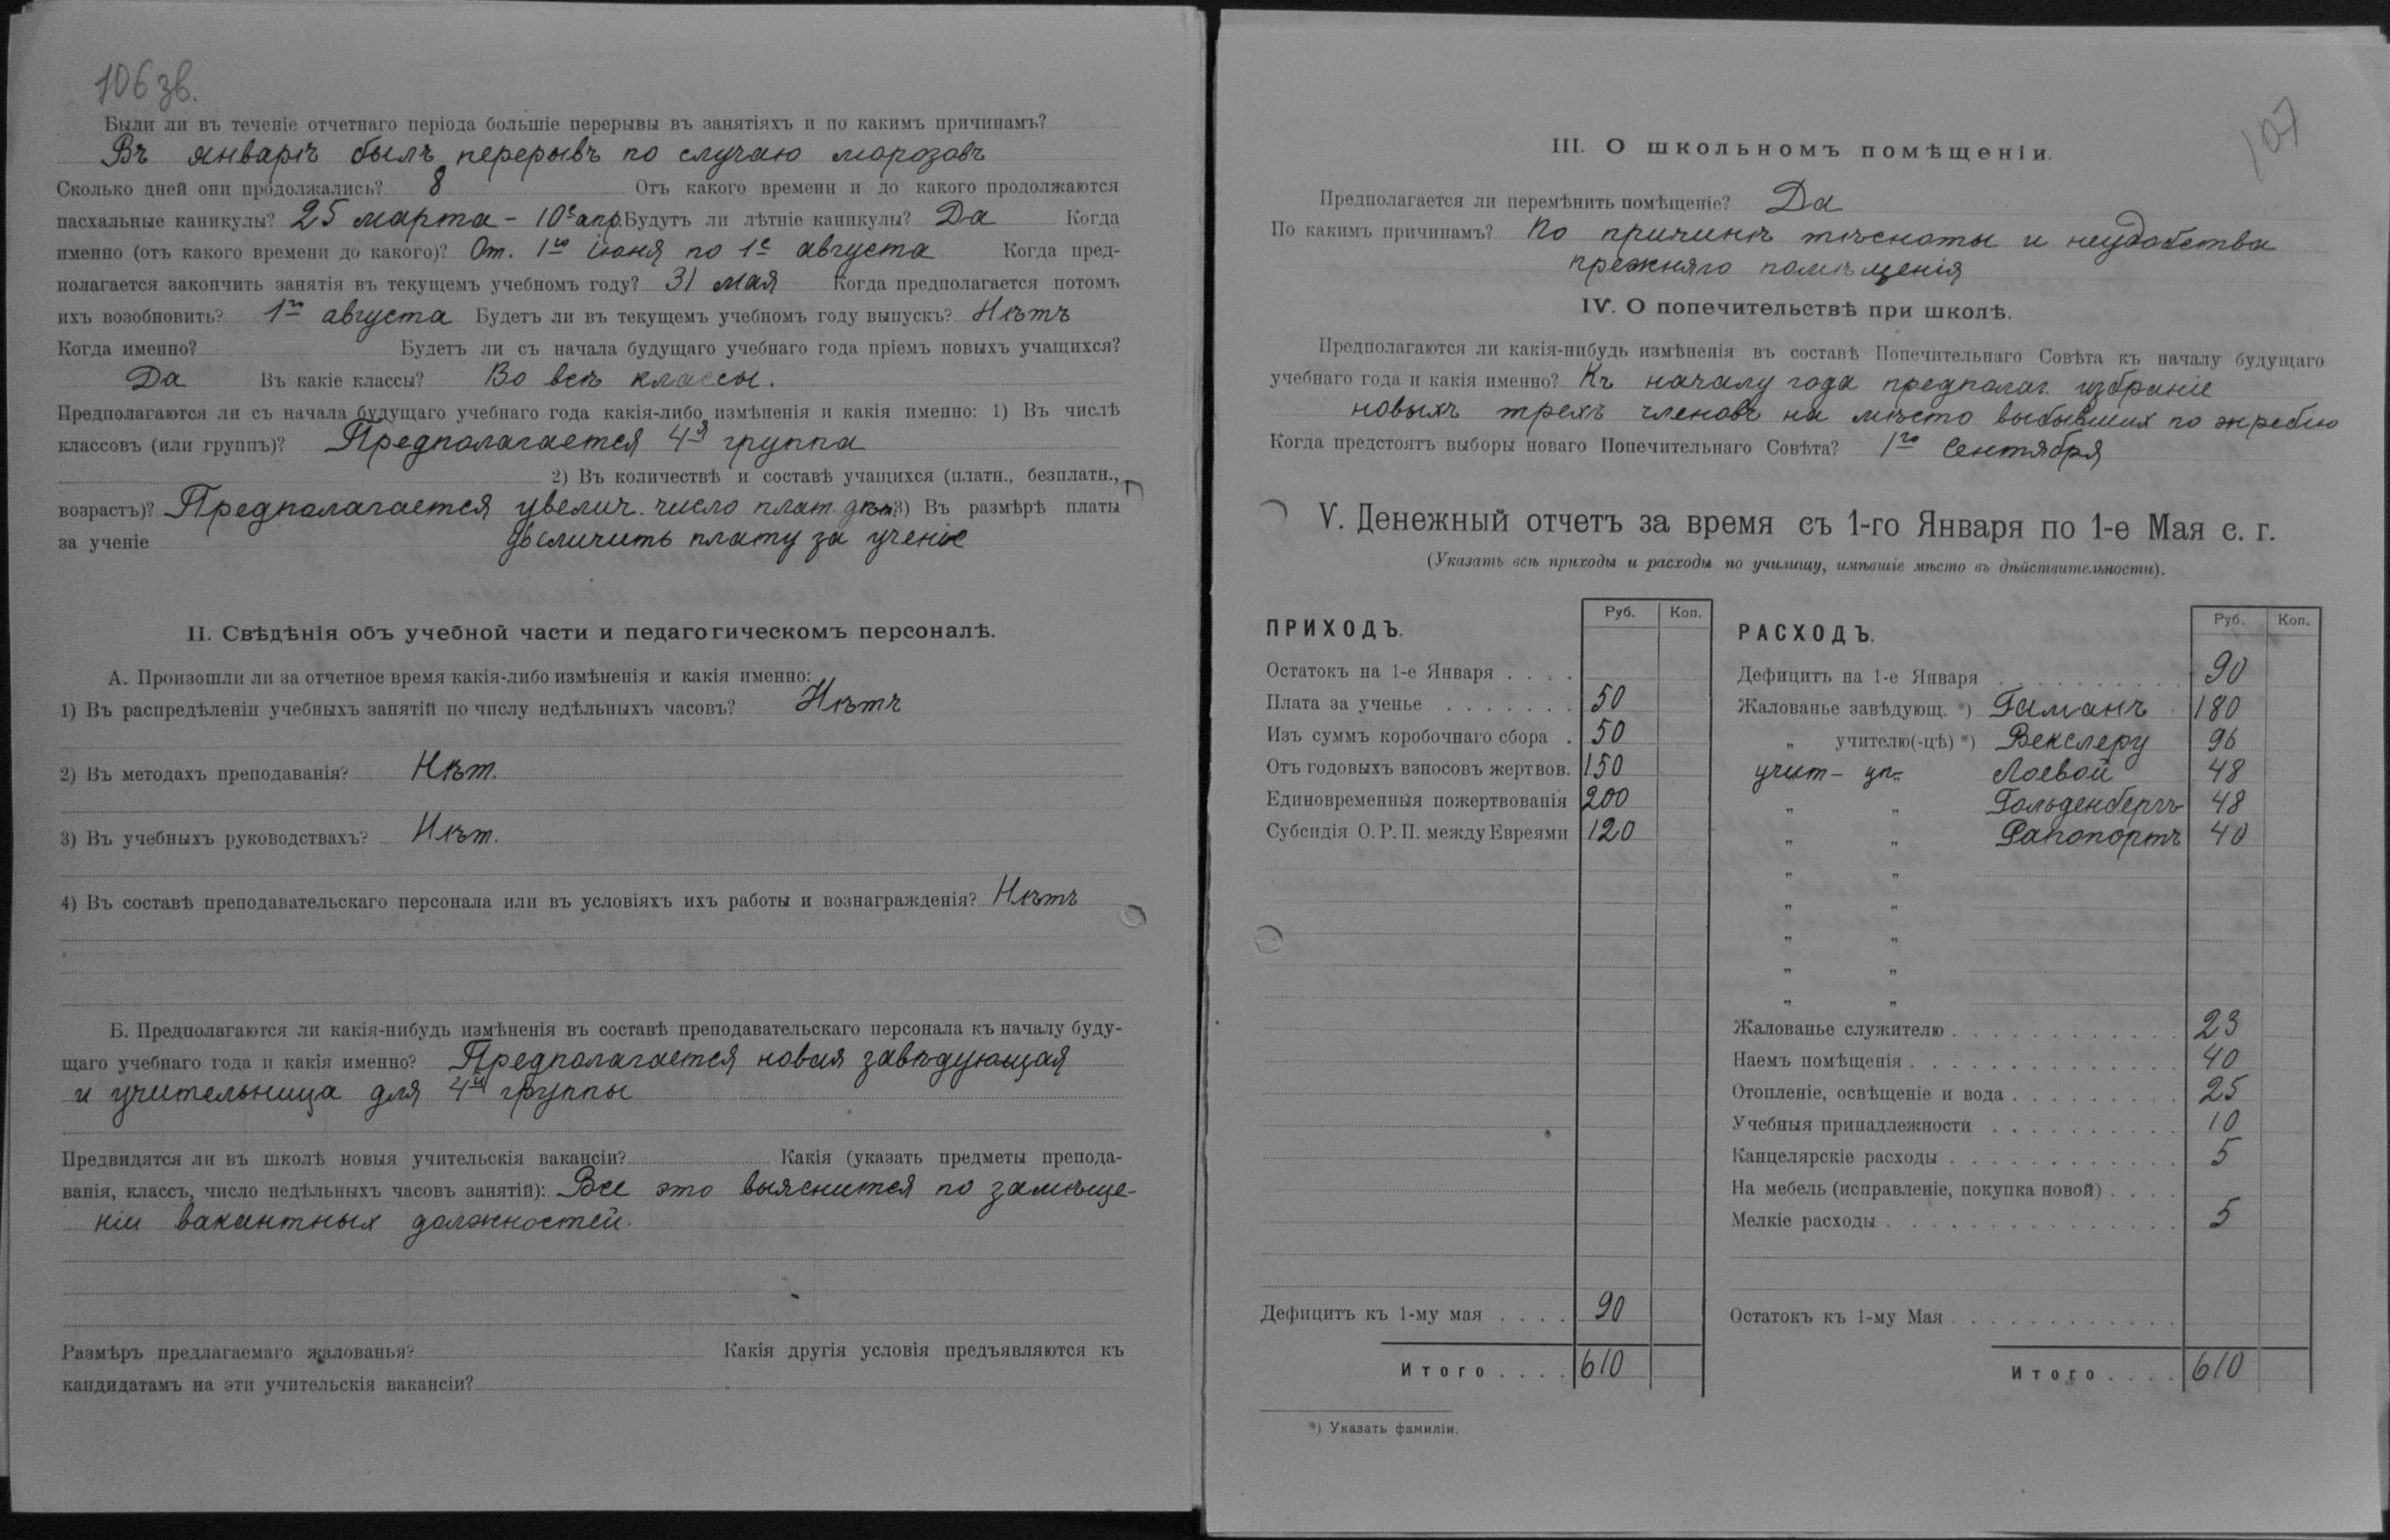 106 зв.
Были ли въ теченіе отчетнаго періода большіе перерывы въ занятіяхъ и по какимъ причинамъ?
Въ январѣ былъ перерывъ по случаю морозовъ
Сколько дней они продолжались? 8 Отъ какого времени и до какого продолжаются
пасхальные каникулы? 25 марта - 10е апр. Будутъ ли лѣтніе каникулы? Да Когда
именно (отъ какого времени до какого)? От. 1го іюня по 1е августа Когда пред-
полагается закончить занятія въ текущемъ учебномъ году? 31 мая Когда предполагается потомъ
ихъ возобновить? 1го августа Будетъ ли въ текущемъ учебномъ году выпускъ? Нѣтъ
Когда именно? Будетъ ли съ начала будущаго учебнаго года пріемъ новыхъ учащихся?
Да Въ какіе классы? Во всѣ классы.
Предполагаются ли съ начала будущаго учебнаго года какія-либо измѣненія и какія именно: 1) Въ числѣ
классовъ (или группъ)? Предполагается 4я группа
2) Въ количествѣ и составѣ учащихся (платн., безплатн.,
возрастъ)? Предполагается увелич. число плат. дѣт. 3) Въ размѣрѣ платы
за ученіе увеличить плату за ученіе
II. Свѣдѣнія объ учебной части и педагогическомъ персоналѣ.
А. Произошли ли за отчетное время какія-либо измѣненія и какія именно:
1) Въ распредѣленіи учебныхъ занятій по числу недѣльныхъ часовъ? Нѣтъ
2) Въ методахъ преподаванія? Нѣт.
3) Въ учебныхъ руководствахъ? Нѣт.
4) Въ составѣ преподавательскаго персонала или въ условіяхъ ихъ работы и вознагражденія? Нѣтъ
Б. Предполагаются ли какія-нибудь измѣненія въ составѣ преподавательскаго персонала къ началу буду-
щаго учебнаго года и какія именно? Предполагается новая завѣдующая
и учительница для 4й группы
Предвидятся ли въ школѣ новыя учительскія вакансіи? Какія (указать предметы препода-
ванія, классъ, число недѣльныхъ часовъ занятій): Все это выяснится по замѣще-
ніи вакантных должностей.
Размѣръ предлагаемаго жалованья? Какія другія условія предъявляются къ
кандидатамъ на эти учительскія вакансіи?
107
III. О школьномъ помѣщеніи.
Предполагается ли перемѣнить помѣщеніе? Да
По какимъ причинамъ? По причинѣ тѣсноты и неудобства
прежняго помѣщенія
IV. О попечительствѣ при школѣ.
Предполагаются ли какія-нибудь измѣненія въ составѣ Попечительнаго Совѣта къ началу будущаго
учебнаго года и какія именно? Къ началу года предполаг. избраніе
новыхъ трехъ членовъ на мѣсто выбывших по жребію
Когда предстоятъ выборы новаго Попечительнаго Совѣта? 1го Сентября
V. Денежный отчетъ за время съ 1-го Января по 1-е Мая с. г.
(Указать всѣ приходы и расходы по училищу, имѣвшіе мѣсто въ дѣйствительности).
ПРИХОДЪ. Руб. Коп.
Остатокъ на 1-е Января . . . .
Плата за ученье . . . . . . . 50
Изъ суммъ коробочнаго сбора . 50
Отъ годовыхъ взносовъ жертвов. 150
Единовременныя пожертвованія 200
Субсидія О. Р. П. между Евреями 120
Дефицитъ къ 1-му мая . . . . 90
Итого . . . . 610
РАСХОДЪ. Руб. Коп.
Дефицитъ на 1-е Января . . . . . . . . . . 90
Жалованье завѣдующ. *) Гаманъ 180
„ учителю(-цѣ) *) Векслеру 96
учит- цѣ Лоевой 48
„ „ Гольденбергъ 48
„ „ Рапопортъ 40
„ „
„ „
„ „
„ „
„ „
Жалованье служителю . . . . . . . . . . . . 23
Наемъ помѣщенія . . . . . . . . . . . . . . 40
Отопленіе, освѣщеніе и вода . . . . . . . . . 25
Учебныя принадлежности . . . . . . . . . . 10
Канцелярскіе расходы . . . . . . . . . . . . 5
На мебель (исправленіе, покупка новой) . . . .
Мелкіе расходы . . . . . . . . . . . . . . . 5
Остатокъ къ 1-му Мая . . . . . . . . . . . .
Итого . . . . 610
*) Указать фамиліи.